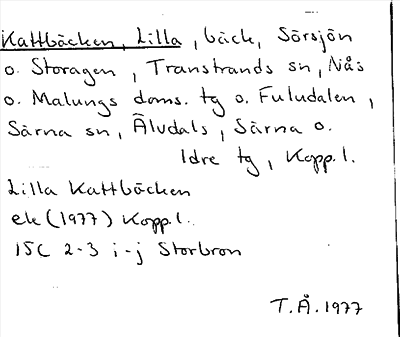 Kattbäcken, Lilla, bäck, Sörsjön
o. Storagen, Transtrands sn, Nås
o. Malungs doms. tg o. Fuludalen,
Särna sn, Älvdals, Särna o.
Idre tg, Kopp.l.
Lilla Kattbäcken
ek (1977) Kopp.l.
15C 2-3 i-j Storbron
T.Å. 1977